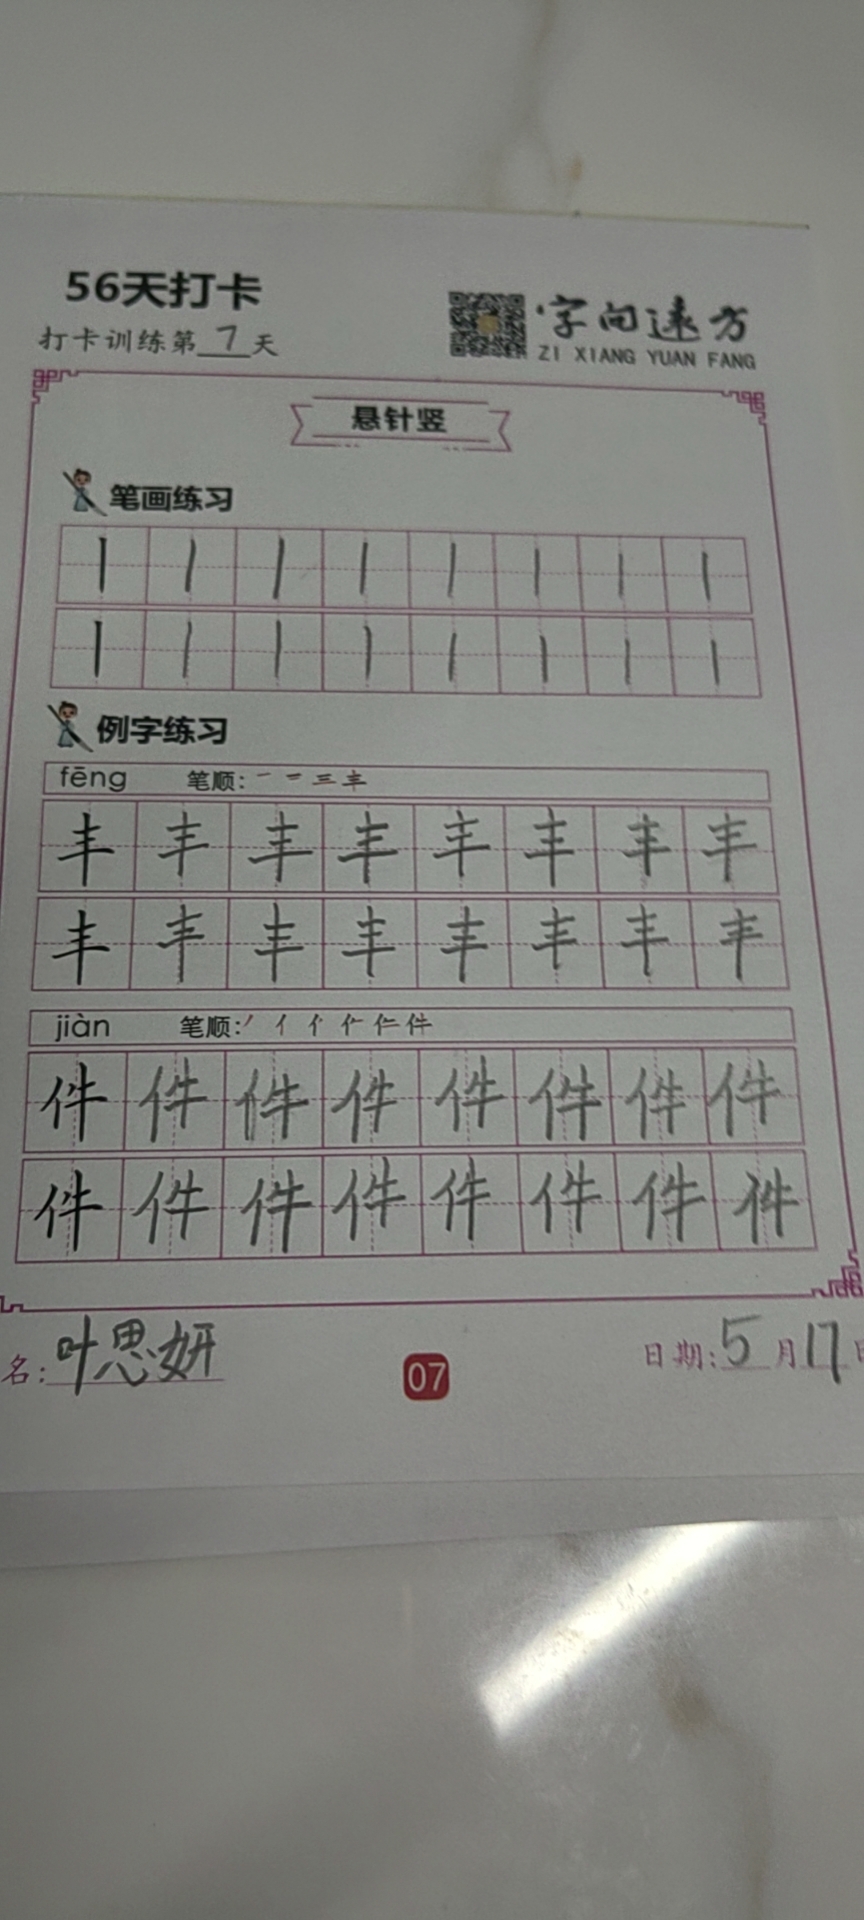 56天打卡
字向远方
打卡训练第7天
ZI XIANG YUAN FANG
悬针竖
笔画练习
丨丨丨丨丨丨丨丨
丨丨丨丨丨丨丨丨
例字练习
fēng 笔顺: 一 二 三 丰
丰丰丰丰丰丰丰丰
丰丰丰丰丰丰丰丰
jiàn 笔顺: 丿 亻 件
件件件件件件件件
件件件件件件件件
名: 叶思妍
07
日期: 5月17日